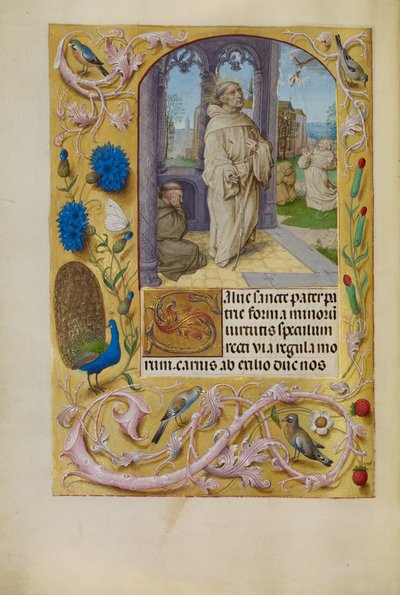 Salue sancte pater pa
trie forma minorū
uirtutis speculum
recti uia regula mo
rum. carnis ab exilio duc nos